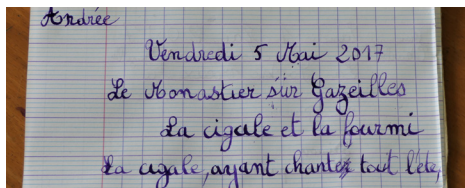 Andrée
Vendredi 5 Mai 2017
Le Monastier sur Gazeilles
La cigale et la fourmi
La cigale, ayant chantez tout l'été,